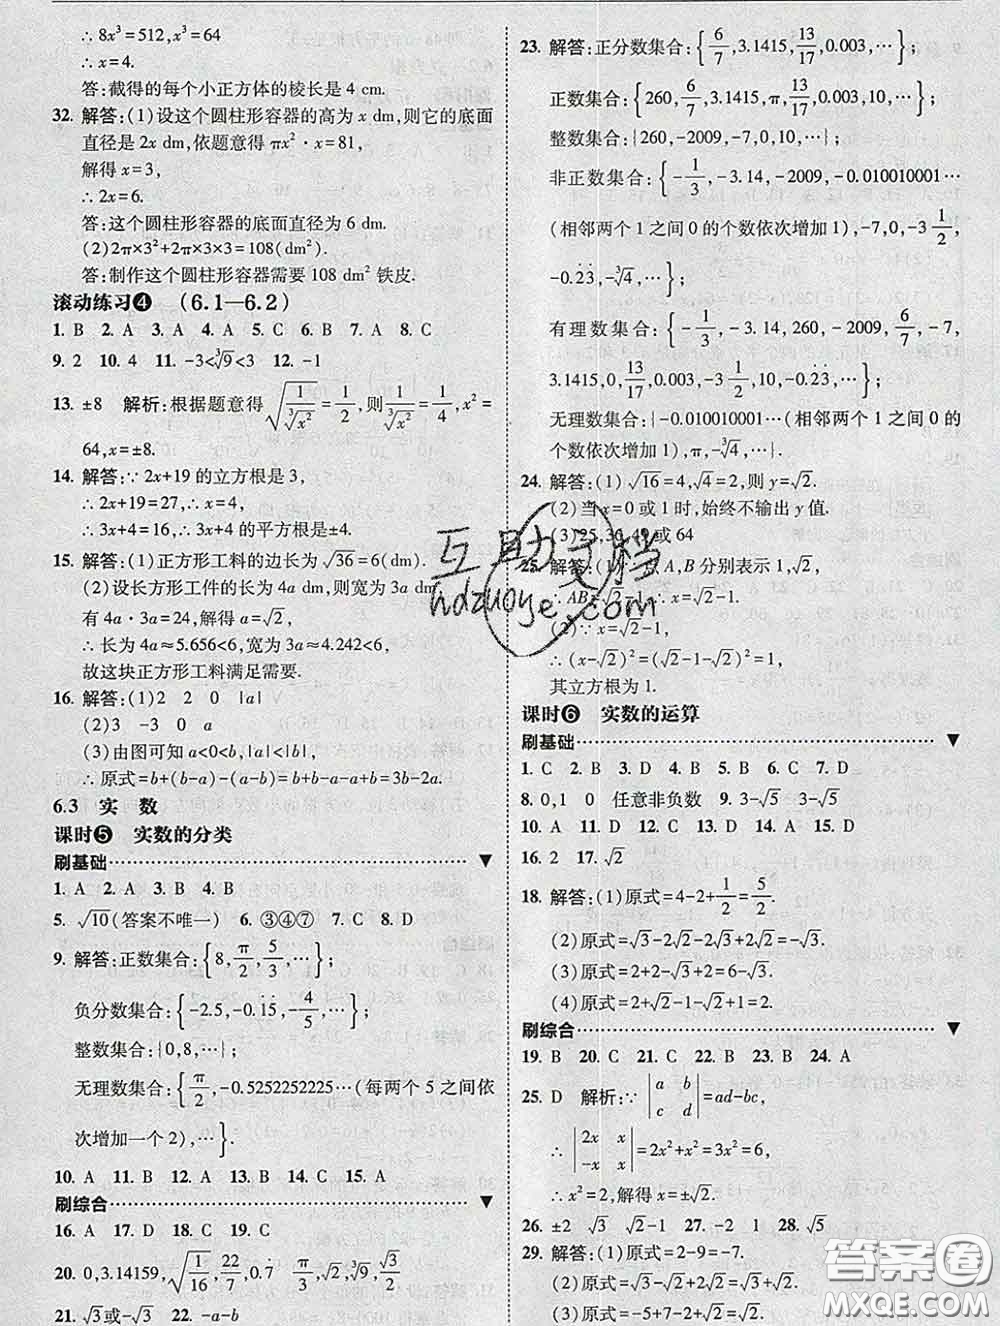 ∴ 8x³=512, x³=64
∴ x=4.
答:截得的每个小正方体的棱长是 4 cm.
32. 解答:(1)设这个圆柱形容器的高为 x dm,则它的底面
直径是 2x dm,依题意得 πx²·x=81,
解得 x=3,
∴ 2x=6.
答:这个圆柱形容器的底面直径为 6 dm.
(2)2π×3²+2π×3×3=108(dm²).
答:制作这个圆柱形容器需要 108 dm² 铁皮.
滚动练习❹ (6.1—6.2)
1. B 2. A 3. A 4. A 5. C 6. B 7. A 8. C
9. 2 10. 4 11. -3<∛9<3 12. -1
13. ±8 解析:根据题意得 √(1/∛(x²)) = 1/2, 则 1/∛(x²) = 1/4, x²=
64, x=±8.
14. 解答:∵ 2x+19 的立方根是 3,
∴ 2x+19=27, ∴ x=4,
∴ 3x+4=16, ∴ 3x+4 的平方根是±4.
15. 解答:(1)正方形工料的边长为 √36=6(dm).
(2)设长方形工件的长为 4a dm,则宽为 3a dm
有 4a·3a=24,解得 a=√2,
∴ 长为 4a≈5.656<6,宽为 3a≈4.242<6,
故这块正方形工料满足需要.
16. 解答:(1)2 2 0 |a|
(2)3 -3 0 a
(3)由图可知 a<0<b, |a|<|b|,
∴ 原式=b+(b-a)-(a-b)=b+b-a-a+b=3b-2a.
6.3 实 数
课时❺ 实数的分类
刷基础 ▼
1. A 2. A 3. B 4. B
5. √10(答案不唯一) 6. ③④⑦ 7. C 8. D
9. 解答:正数集合:{8, π/2, 5/3, …};
负分数集合:{-2.5, -0.1̇5̇, -4/5, …};
整数集合:{0,8,…};
无理数集合:{π/2, -0.5252252225…(每两个 5 之间依
次增加一个 2),…}.
10. A 11. B 12. B 13. C 14. C 15. A
刷综合 ▼
16. A 17. D 18. C 19. C
20. 0, 3.14159, √(1/16), 22/7, 0.7̇ π/3, √2, ∛9, √3/2
21. √3或-√3 22. -a-b
23. 解答:正分数集合:{6/7, 3.1415, 13/17, 0.003, …};
正数集合:{260, 6/7, 3.1415, π, 13/17, 0.003, …};
整数集合:{260,-2009,-7,0,10,…};
非正数集合:{-1/3, -3.14, -2009, -0.010010001…
(相邻两个 1 之间 0 的个数依次增加 1), -7, 0, -3 1/2,
-0.2̇3̇, -∛4, …};
有理数集合:{-1/3, -3.14, 260, -2009, 6/7, -7,
3.1415, 0, 13/17, 0.003, -3 1/2, 10, -0.2̇3̇, …};
无理数集合:{-0.010010001…(相邻两个 1 之间 0 的
个数依次增加 1), π, -∛4, …}.
24. 解答:(1) √16=4, √4=2, 则 y=√2.
(2)当 x=0 或 1 时,始终不输出 y 值.
(3)25,36,49 或 64
25. 解答:(1)∵点 A,B 分别表示 1,√2,
∴ AB=√2-1, ∴ x=√2-1.
(2)∵ x=√2-1,
∴ (x-√2)²=(√2-1-√2)²=1,
其立方根为 1.
课时❻ 实数的运算
刷基础 ▼
1. C 2. B 3. D 4. B 5. B 6. C 7. D
8. 0,1 0 任意非负数 9. 3-√5 3-√5
10. A 11. D 12. C 13. C 14. A 15. D
16. 2 17. √2
18. 解答:(1)原式=4-2+1/2=5/2.
(2)原式=√3-2√2-2√3+2√2=-√3.
(3)原式=4-√3+2=6-√3.
(4)原式=2+√2-1-√2+1=2.
刷综合 ▼
19. B 20. C 21. C 22. B 23. B 24. A
25. D 解析:∵ |a b; c d|=ad-bc,
∴ |2x x; -x x|=2x²+x²=3x²=6,
∴ x²=2,解得 x=±√2.
26. ±2 √3 √2-1 27. -2 28. √5
29. 解答:(1)原式=2-9=-7.
(2)原式=2√3+√2-√3=√2+√3.
(3)原式=-5+7-2+√2=√2.
互助文档
hdzuoye.com
答案圈
MXQE.COM